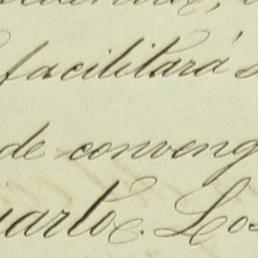 facilitará
de conveng
uarto. Los